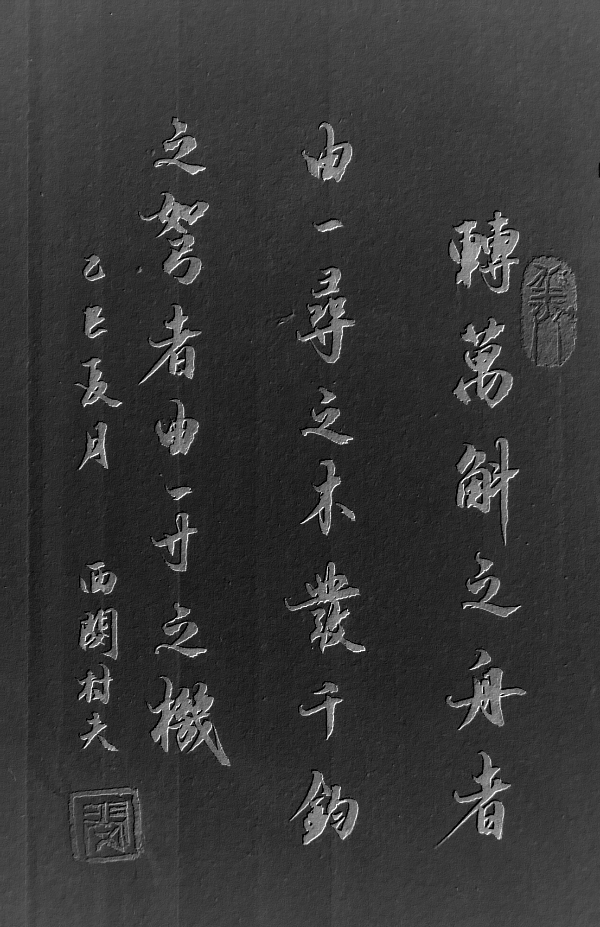 轉萬斛之舟者
由一尋之木發千鈞
之弩者由一寸之機
乙巳夏月 西關村夫